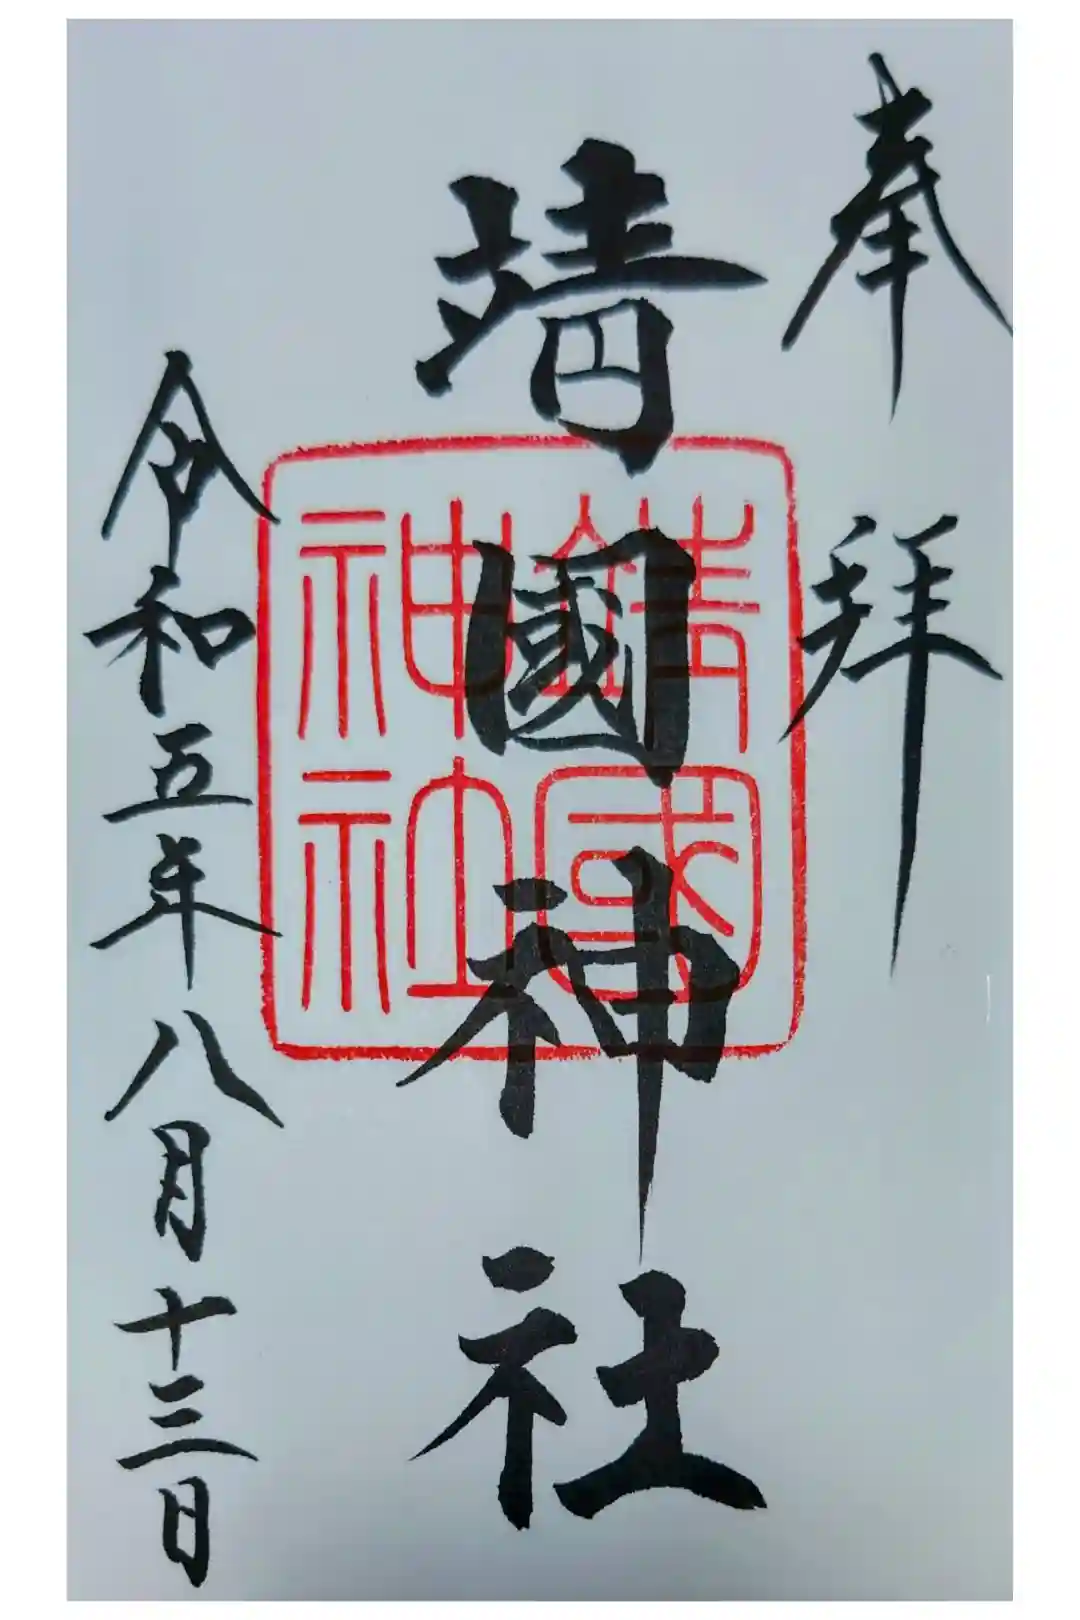 奉拝
靖國神社
令和五年八月十三日
靖國
神社